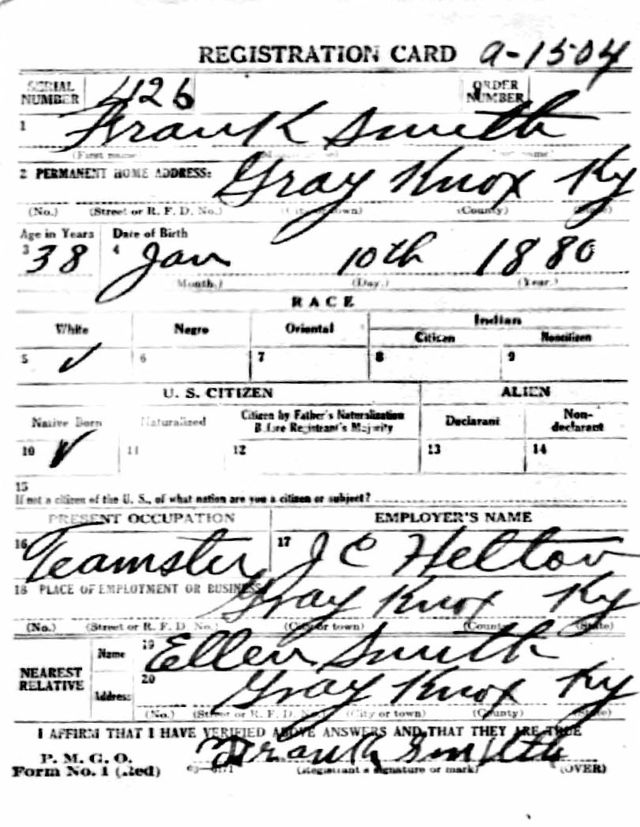 REGISTRATION CARD a-1504
SERIAL NUMBER 426 ORDER NUMBER
1 Frank Smith
(First name) name)
2 PERMANENT HOME ADDRESS: Gray Knox Ky
(No.) (Street or R. F. D. No.) (City or town) (County) (State)
Age in Years Date of Birth
3 38 4 Jan 10th 1880
Month.) (Day.) (Year.)
RACE
White Negro Oriental Indian
Citizen Noncitizen
5 ✓ 6 7 8 9
U. S. CITIZEN ALIEN
Native Born Naturalized Citizen by Father's Naturalization Before Registrant's Majority Declarant Non-declarant
10 ✓ 11 12 13 14
15
If not a citizen of the U. S., of what nation are you a citizen or subject?
PRESENT OCCUPATION EMPLOYER'S NAME
16 Teamster 17 J C Helton
18 PLACE OF EMPLOYMENT OR BUSINESS: Gray Knox Ky
(No.) (Street or R. F. D. No.) (City or town) (County) (State)
NEAREST RELATIVE Name 19 Ellen Smith
Address 20 Gray Knox Ky
(No.) (Street or R. F. D. No.) (City or town) (County) (State)
I AFFIRM THAT I HAVE VERIFIED ABOVE ANSWERS AND THAT THEY ARE TRUE
P. M. G. O.
Form No. 1 (Red) Frank Smith
(Registrant's signature or mark) (OVER)